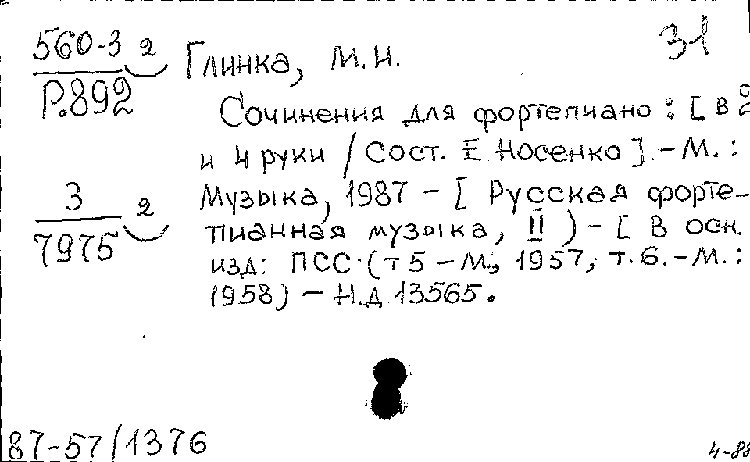 31
560-3 2
Р.892
Глинка, М.И.
Сочинения для фортепиано : [ В 2
и 4 руки / Сост. Е. Носенко ]. - М. :
3 2
7975
Музыка, 1987 - [ Русская форте-
пианная музыка, II ) - [ В осн.
изд: ПСС (т 5 - М., 1957, т. 6. - М. :
1958) - Н.Д 13565.
87-57/1376
4-88